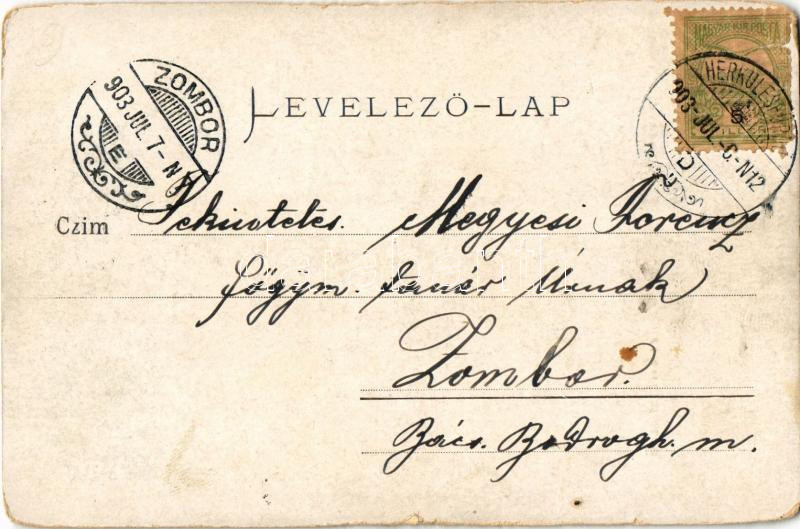 MAGYAR KIR. POSTA
HERKULES
903 JUL. 6. N12
D
ZOMBOR
903 JUL. 7. N
E
LEVELEZŐ-LAP
Czim Tekintetes Megyesi Ferencz
főgym. tanár Úrnak
Zombor.
Bács. Bodrogh. m.